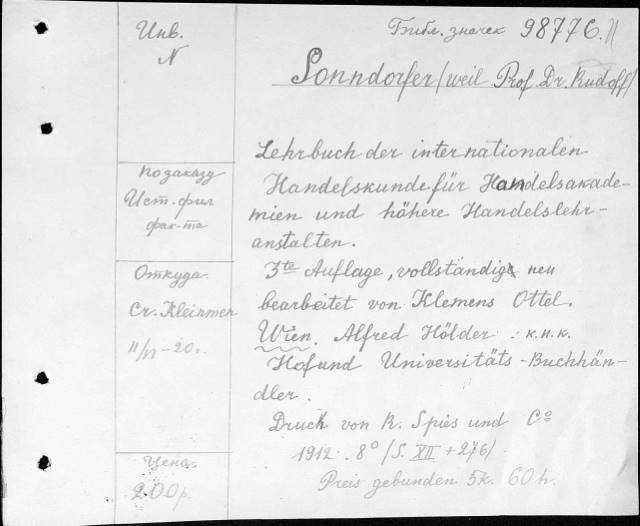 Инв.
N
Библ. значек 98776.
Sonndorfer / weil Prof. Dr. Rudolf /
Lehrbuch der internationalen
Handelskunde für Handelsakade-
mien und höhere Handelslehr-
anstalten.
3te Auflage, vollständig neu
bearbeitet von Klemens Ottel.
Wien. Alfred Hölder. k.u.k.
Hof und Universitäts-Buchhän-
dler.
Druck von R. Spies und Co
1912. 8° / S. XII + 276 /.
Preis gebunden 5k. 60h.
по заказу
Ист. фил
фак-та
Откуда.
Ст. Клейнмен
11/VI - 20.
Цена.
200р.